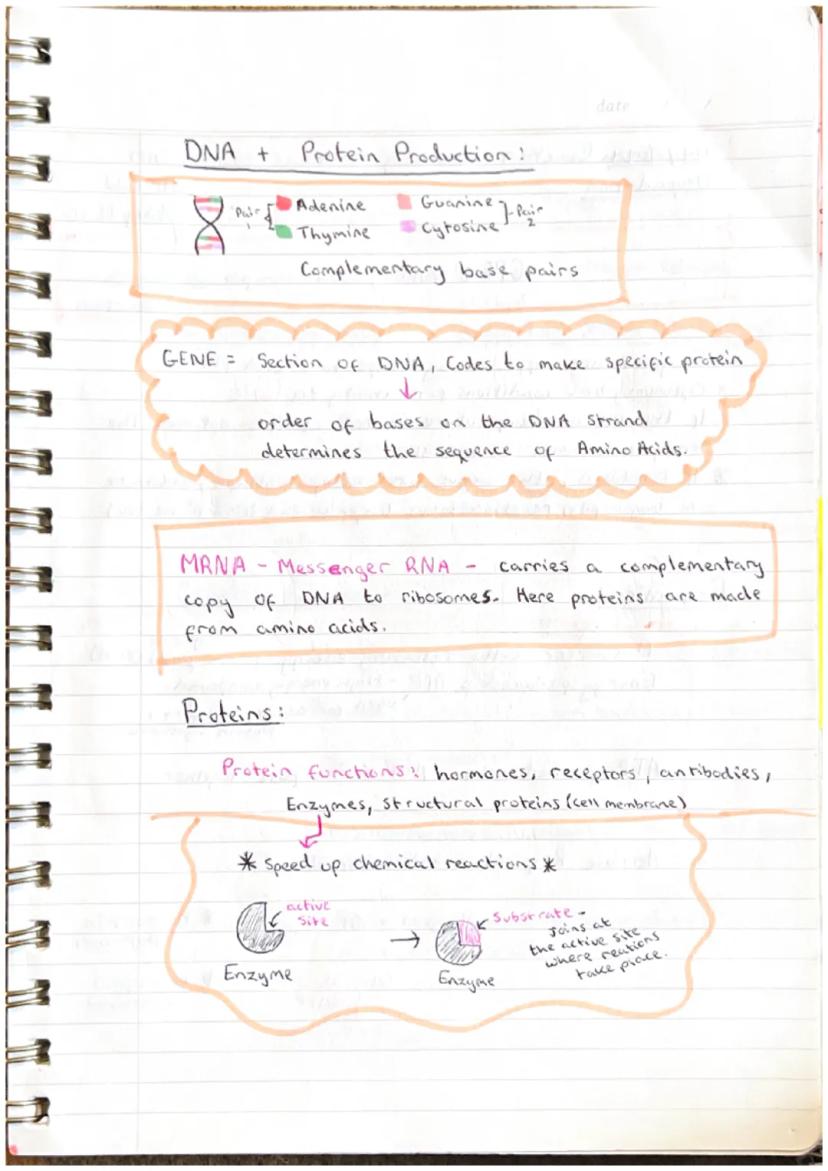 date / /
DNA + Protein Production:
Pair 1 Adenine Guanine Pair 2
Thymine Cytosine
Complementary base pairs
GENE = Section of DNA, Codes to make specific protein
order of bases on the DNA strand
determines the sequence of Amino Acids.
MRNA - Messenger RNA - carries a complementary
copy of DNA to ribosomes. Here proteins are made
from amino acids.
Proteins:
Protein functions: hormones, receptors, antibodies,
Enzymes, Structural proteins (cell membrane)
* Speed up chemical reactions *
active
site
Enzyme
Substrate -
Joins at
the active site
where reations
take place.
Enzyme